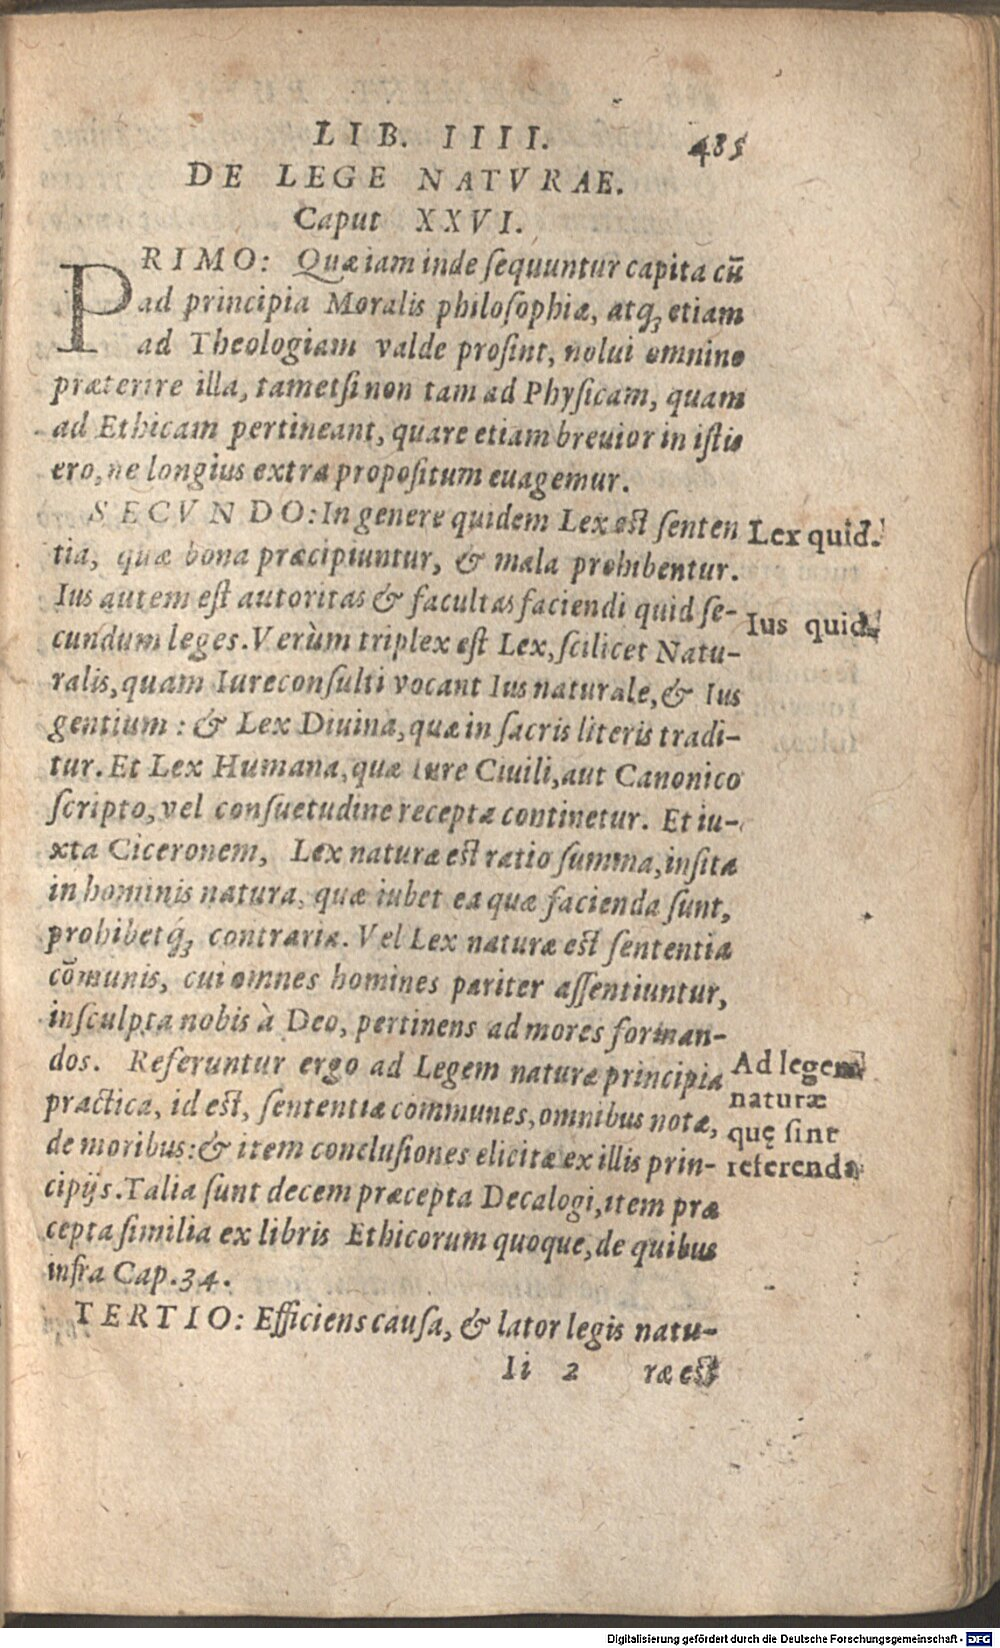 LIB. IIII. 485
DE LEGE NATVRAE.
Caput XXVI.
PRIMO: Quæ iam inde ſequuntur capita cū
ad principia Moralis philoſophiæ, atq́ꝫ etiam
ad Theologiam valde proſint, nolui omnino
præterire illa, tametſi non tam ad Phyſicam, quam
ad Ethicam pertineant, quare etiam breuior in iſtis
ero, ne longius extra propoſitum euagemur.
SECVNDO: In genere quidem Lex eſt ſenten
tia, quæ bona præcipiuntur, & mala prohibentur.
Ius autem eſt autoritas & facultas faciendi quid ſe-
cundum leges. Verùm triplex eſt Lex, ſcilicet Natu-
ralis, quam Iureconſulti vocant Ius naturale, & Ius
gentium: & Lex Diuina, quæ in ſacris literis tradi-
tur. Et Lex Humana, quæ iure Ciuili, aut Canonico
ſcripto, vel conſuetudine recepta continetur. Et iu-
xta Ciceronem, Lex naturæ eſt ratio ſumma, inſita
in hominis natura, quæ iubet ea quæ facienda ſunt,
prohibetq́ꝫ contraria. Vel Lex naturæ eſt ſententia
cōmunis, cui omnes homines pariter aſſentiuntur,
inſculpta nobis à Deo, pertinens ad mores forman-
dos. Referuntur ergo ad Legem naturæ principia
practica, id eſt, ſententiæ communes, omnibus notæ,
de moribus: & item concluſiones elicitæ ex illis prin-
cipijs. Talia ſunt decem præcepta Decalogi, item præ
cepta ſimilia ex libris Ethicorum quoque, de quibus
infra Cap. 34.
TERTIO: Efficiens cauſa, & lator legis natu-
Ii 2 ræ eſt
Lex quid.
Ius quid.
Ad legem
naturæ
quę ſint
referenda
Digitalisierung gefördert durch die Deutsche Forschungsgemeinschaft - DFG